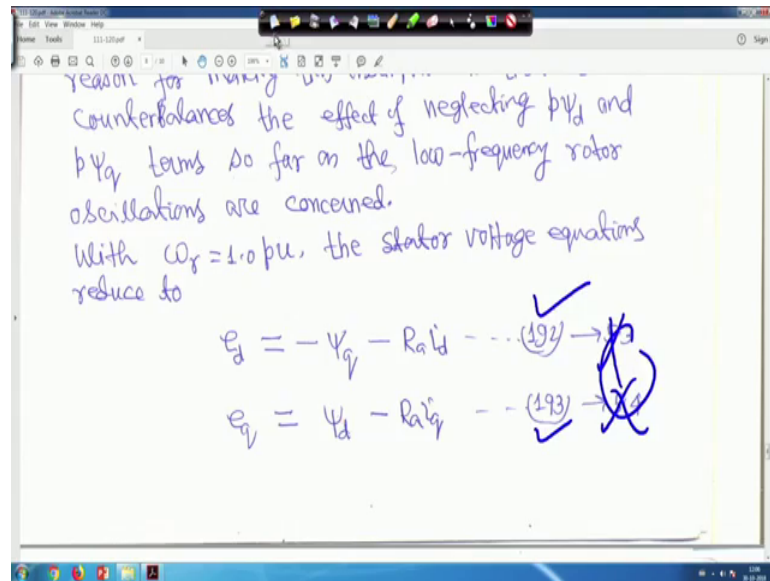 Edit View Window Help
Home Tools 111-120.pdf x
Sign
counterbalances the effect of neglecting pψd and
pψq terms so far as the, low-frequency rotor
oscillations are concerned.
With ωr = 1.0 pu, the stator voltage equations
reduce to
ed = -ψq - Raid - - ... (192) →
eq = ψd - Raiq - - ... (193) →